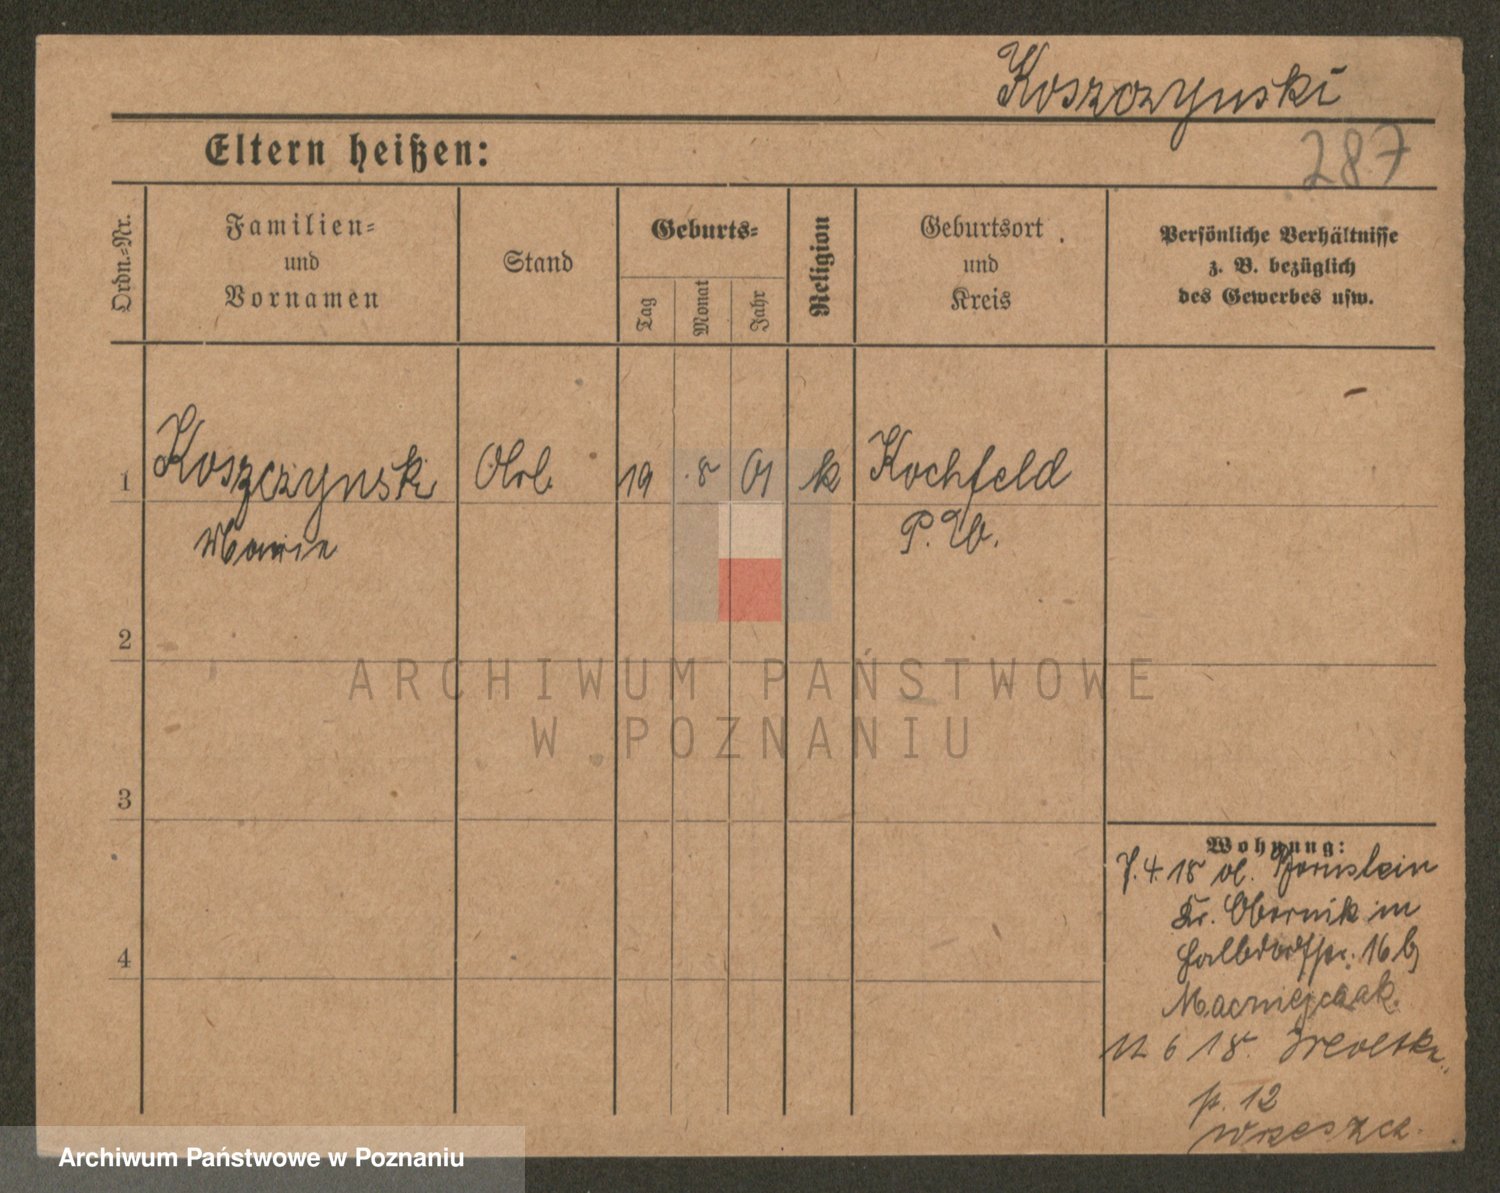 Koszczynski
287
Eltern heißen:
Ordn.-Nr.
Familien-
und
Vornamen
Stand
Geburts-
Tag
Monat
Jahr
Religion
Geburtsort
und
Kreis
Persönliche Verhältnisse
z. B. bezüglich
des Gewerbes usw.
1
Koszczynski
Marie
Arb.
19
8
01
k
Kochfeld
P. W.
2
3
4
Wohnung:
7. 4. 18
Kr. Obornik in
16 b
Macziejczak
12 6 18
p. 12
Wrzeszcz.
ARCHIWUM PAŃSTWOWE
W POZNANIU
Archiwum Państwowe w Poznaniu